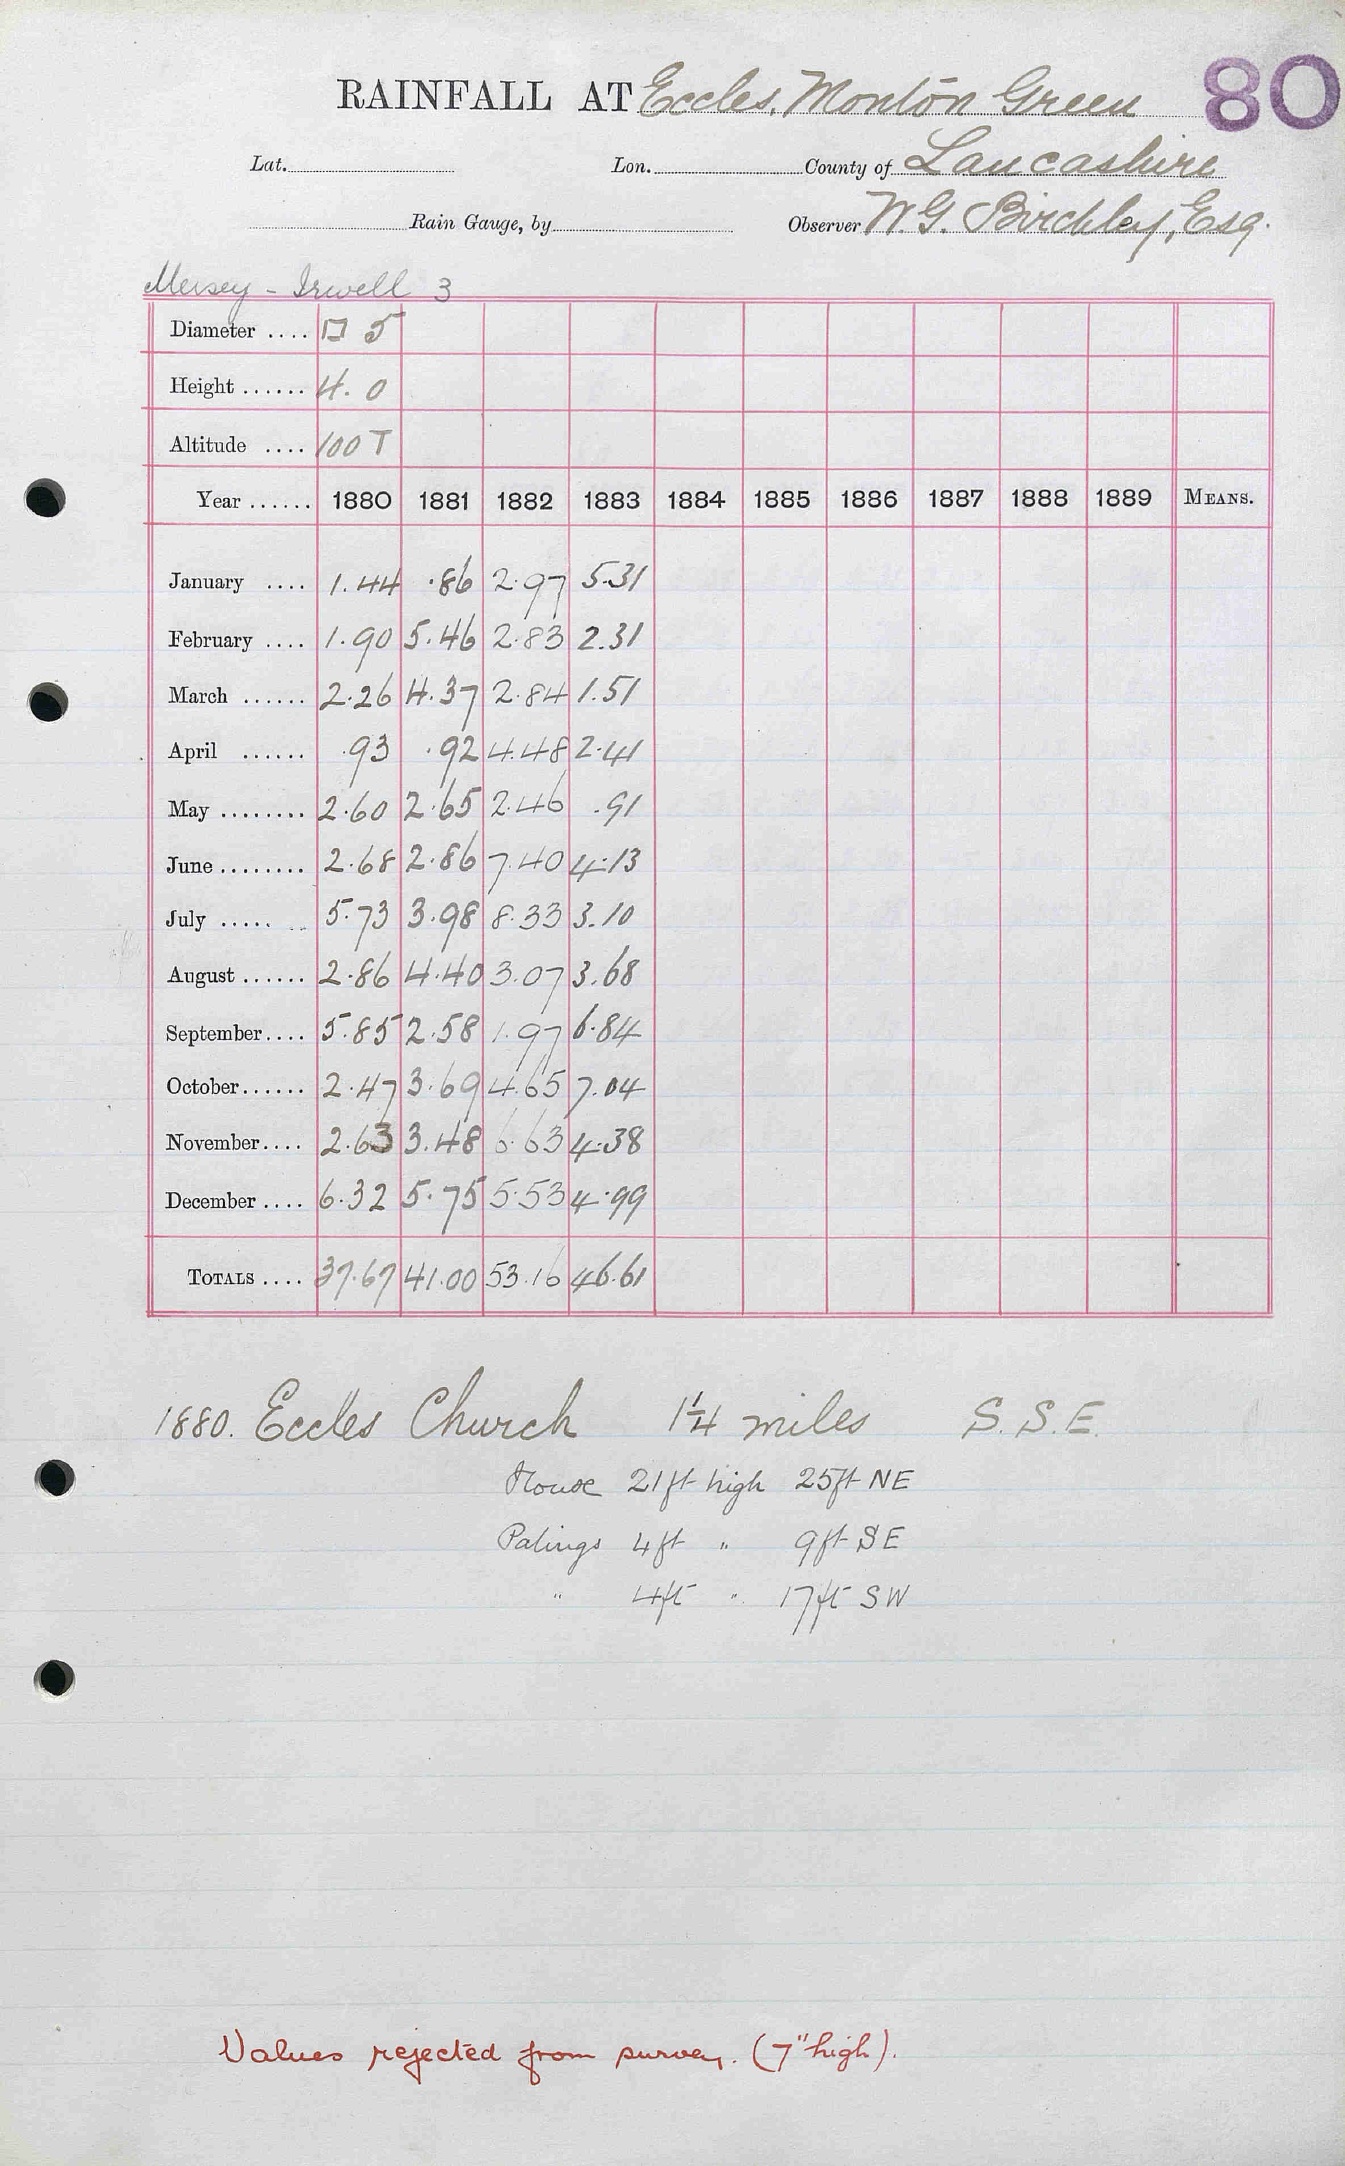 RAINFALL AT Eccles. Monton Green 80
Lat. Lon. County of Lancashire
Rain Gauge, by Observer W.G. Birchley, Esq.
Mersey - Irwell 3
Diameter .... □ 5
Height ...... 4. 0
Altitude .... 100 T
Year ...... 1880 1881 1882 1883 1884 1885 1886 1887 1888 1889 MEANS.
January .... 1.44 .86 2.97 5.31
February .... 1.90 5.46 2.83 2.31
March ...... 2.26 4.37 2.84 1.51
April ...... .93 .92 4.48 2.41
May ........ 2.60 2.65 2.46 .91
June ........ 2.68 2.86 7.40 4.13
July ..... .. 5.73 3.98 8.33 3.10
August ...... 2.86 4.40 3.07 3.68
September .... 5.85 2.58 1.97 6.84
October ...... 2.47 3.69 4.65 7.04
November .... 2.63 3.48 6.63 4.38
December .... 6.32 5.75 5.53 4.99
TOTALS .... 37.67 41.00 53.16 46.61
1880. Eccles Church 1¼ miles S. S. E.
House 21ft high 25ft NE
Palings 4ft " 9ft SE
" 4ft " 17ft SW
Values rejected from survey. (7" high).